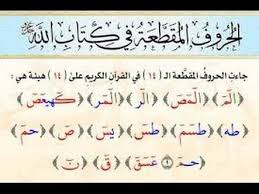 الحروف المقطعة في كتاب الله
جاءت الحروف المقطعة الـ (١٤) في القرآن الكريم على (١٤) هيئة هي :
﴿الٓمٓ﴾ ﴿الٓمٓصٓ﴾ ﴿الٓر﴾ ﴿الٓمٓر﴾ ﴿كٓهيعٓصٓ﴾
﴿طه﴾ ﴿طسٓمٓ﴾ ﴿طسٓ﴾ ﴿يسٓ﴾ ﴿صٓ﴾ ﴿حمٓ﴾
﴿حمٓ ١ عٓسٓقٓ﴾ ﴿قٓ﴾ ﴿نٓ﴾